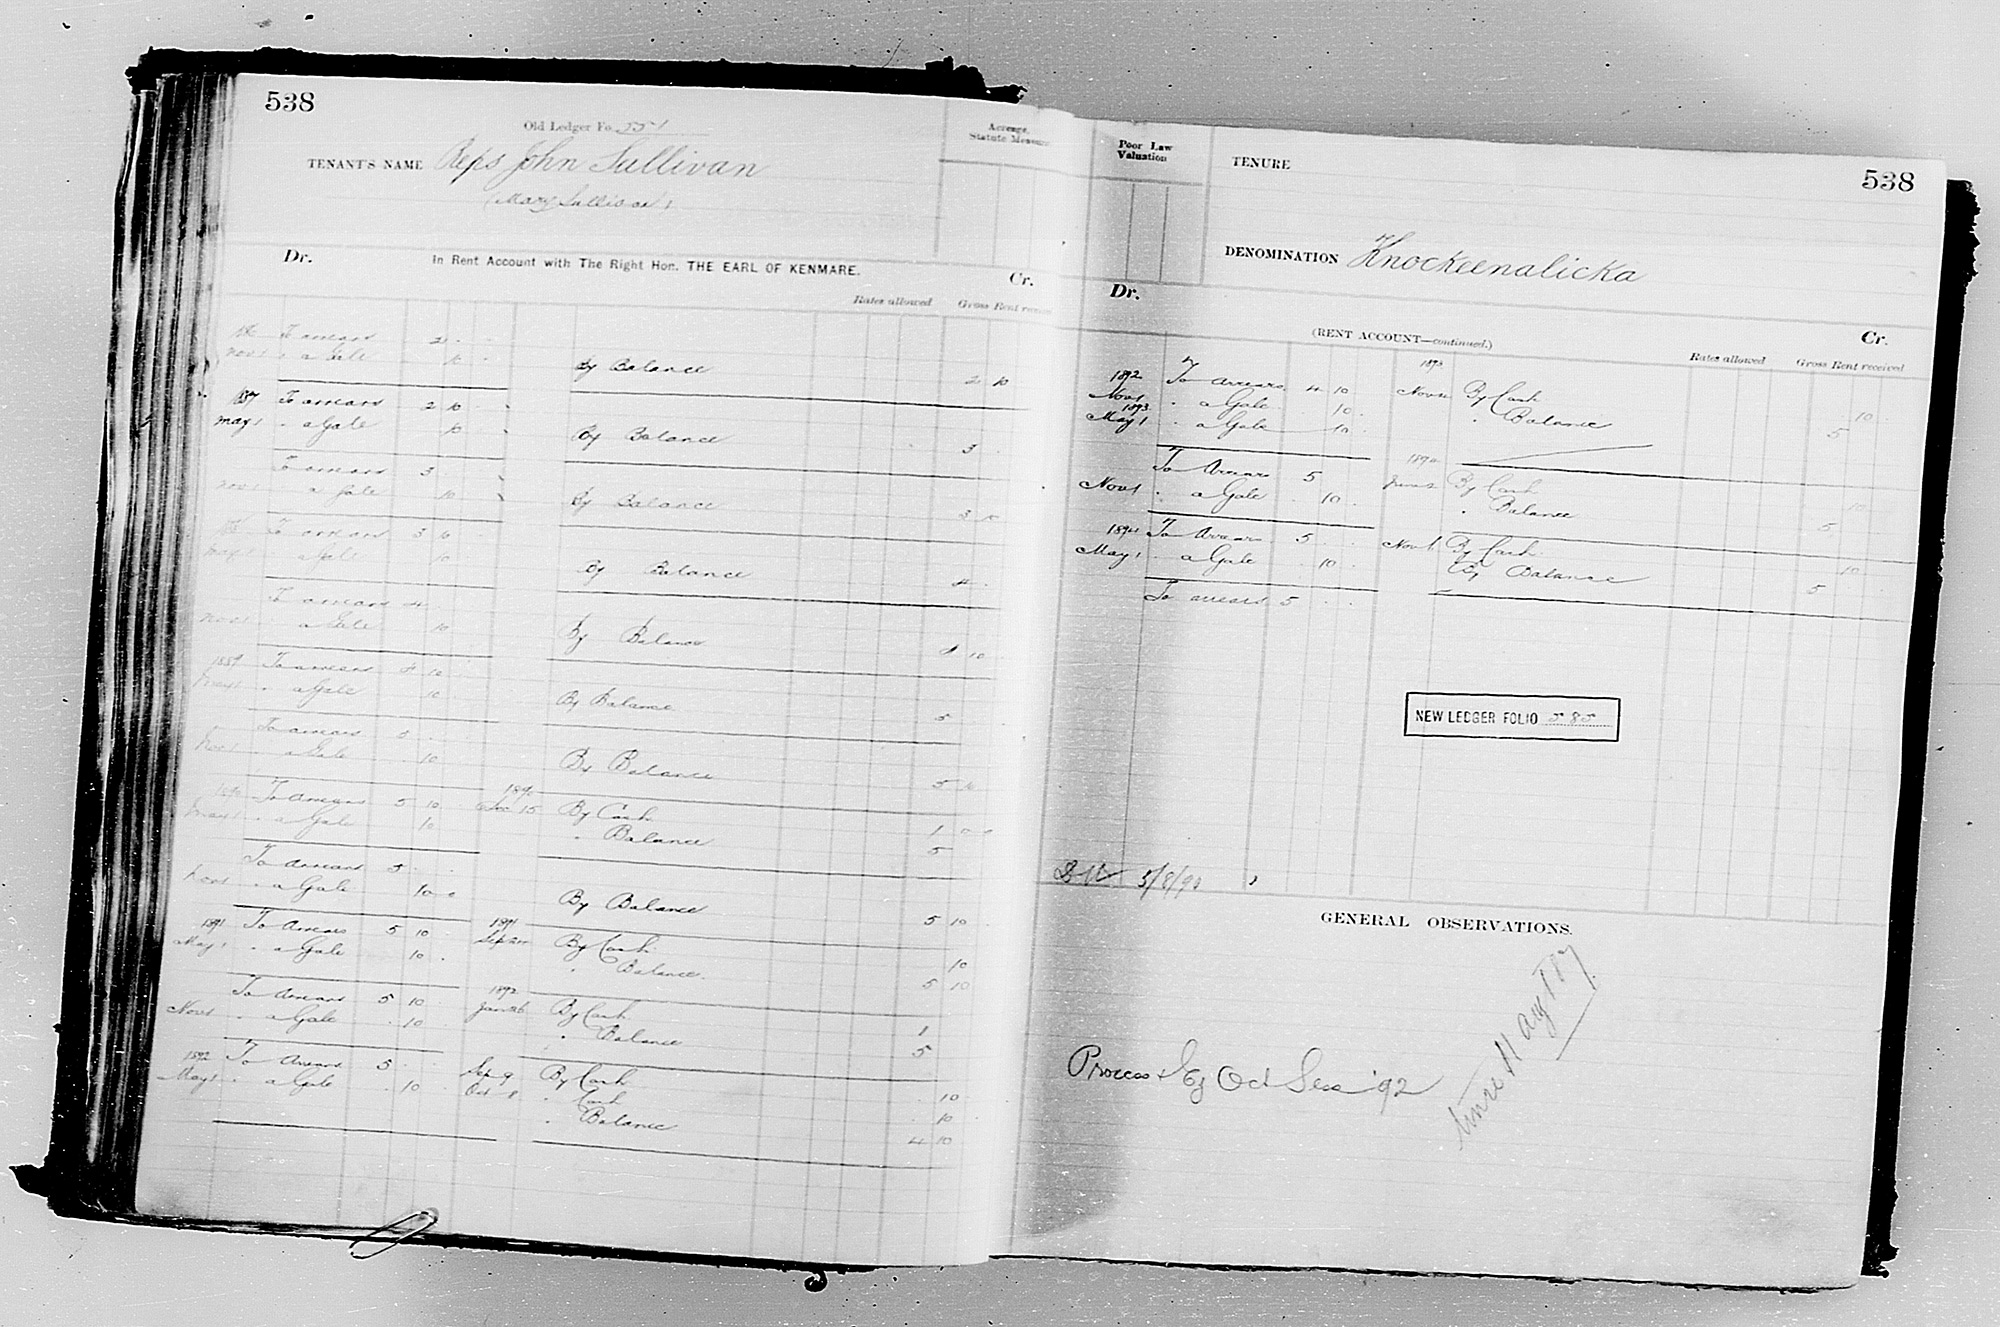 538
Old Ledger Fo. 551
TENANT'S NAME Reps John Sullivan
(Mary Sullivan)
Acreage, Statute Measure
Dr. In Rent Account with The Right Hon. THE EARL OF KENMARE. Cr.
Rates allowed Gross Rent received
To arrears 2 . .
Nov 1 " a Gale 10 .
By Balance 2 10
1887 To arrears 2 10 .
May 1 " a Gale 10 .
By Balance 3 .
To arrears 3 .
Nov 1 a Gale 10 .
By Balance 3 10
To arrears 3 10
May 1 a Gale 10
By Balance 4 .
To arrears 4
Nov 1 a Gale 10
By Balance 4 10
1889 To arrears 4 10
May 1 " a Gale 10
By Balance 5
To arrears 5 .
Nov 1 " a Gale 10
By Balance 5 10
1890 To Arrears 5 10 1890 Dec 15 By Cash 1
May 1 " a Gale 10 " Balance 5
To Arrears 5 .
Nov 1 " a Gale 10
By Balance 5 10
1891 To Arrears 5 10 1891 Sep By Cash 10
May 1 " a Gale 10 . " Balance 5 10
To Arrears 5 10 1892 Jan 26 By Cash 1
Nov 1 " a Gale 10 " Balance 5
1892 To Arrears 5 Sep 9 By Cash 10
May 1 " a Gale 10 Oct 8 " Cash 10
" Balance 4 10
Poor Law Valuation
TENURE
538
DENOMINATION Knockeenalicka
Dr. (RENT ACCOUNT—continued.) Cr.
Rates allowed Gross Rent received
1892 To Arrears 4 10 1893 Nov By Cash 10
Nov 1 " a Gale 10 " Balance 5
1893 May 1 " a Gale 10
To Arrears 5 1894 By Cash 10
Nov 1 " a Gale 10 " Balance 5
1894 To Arrears 5 Nov By Cash 10
May 1 " a Gale 10 By Balance 5
To arrears 5
NEW LEDGER FOLIO 585
5/8/90
GENERAL OBSERVATIONS.
Process Oct Sess '92